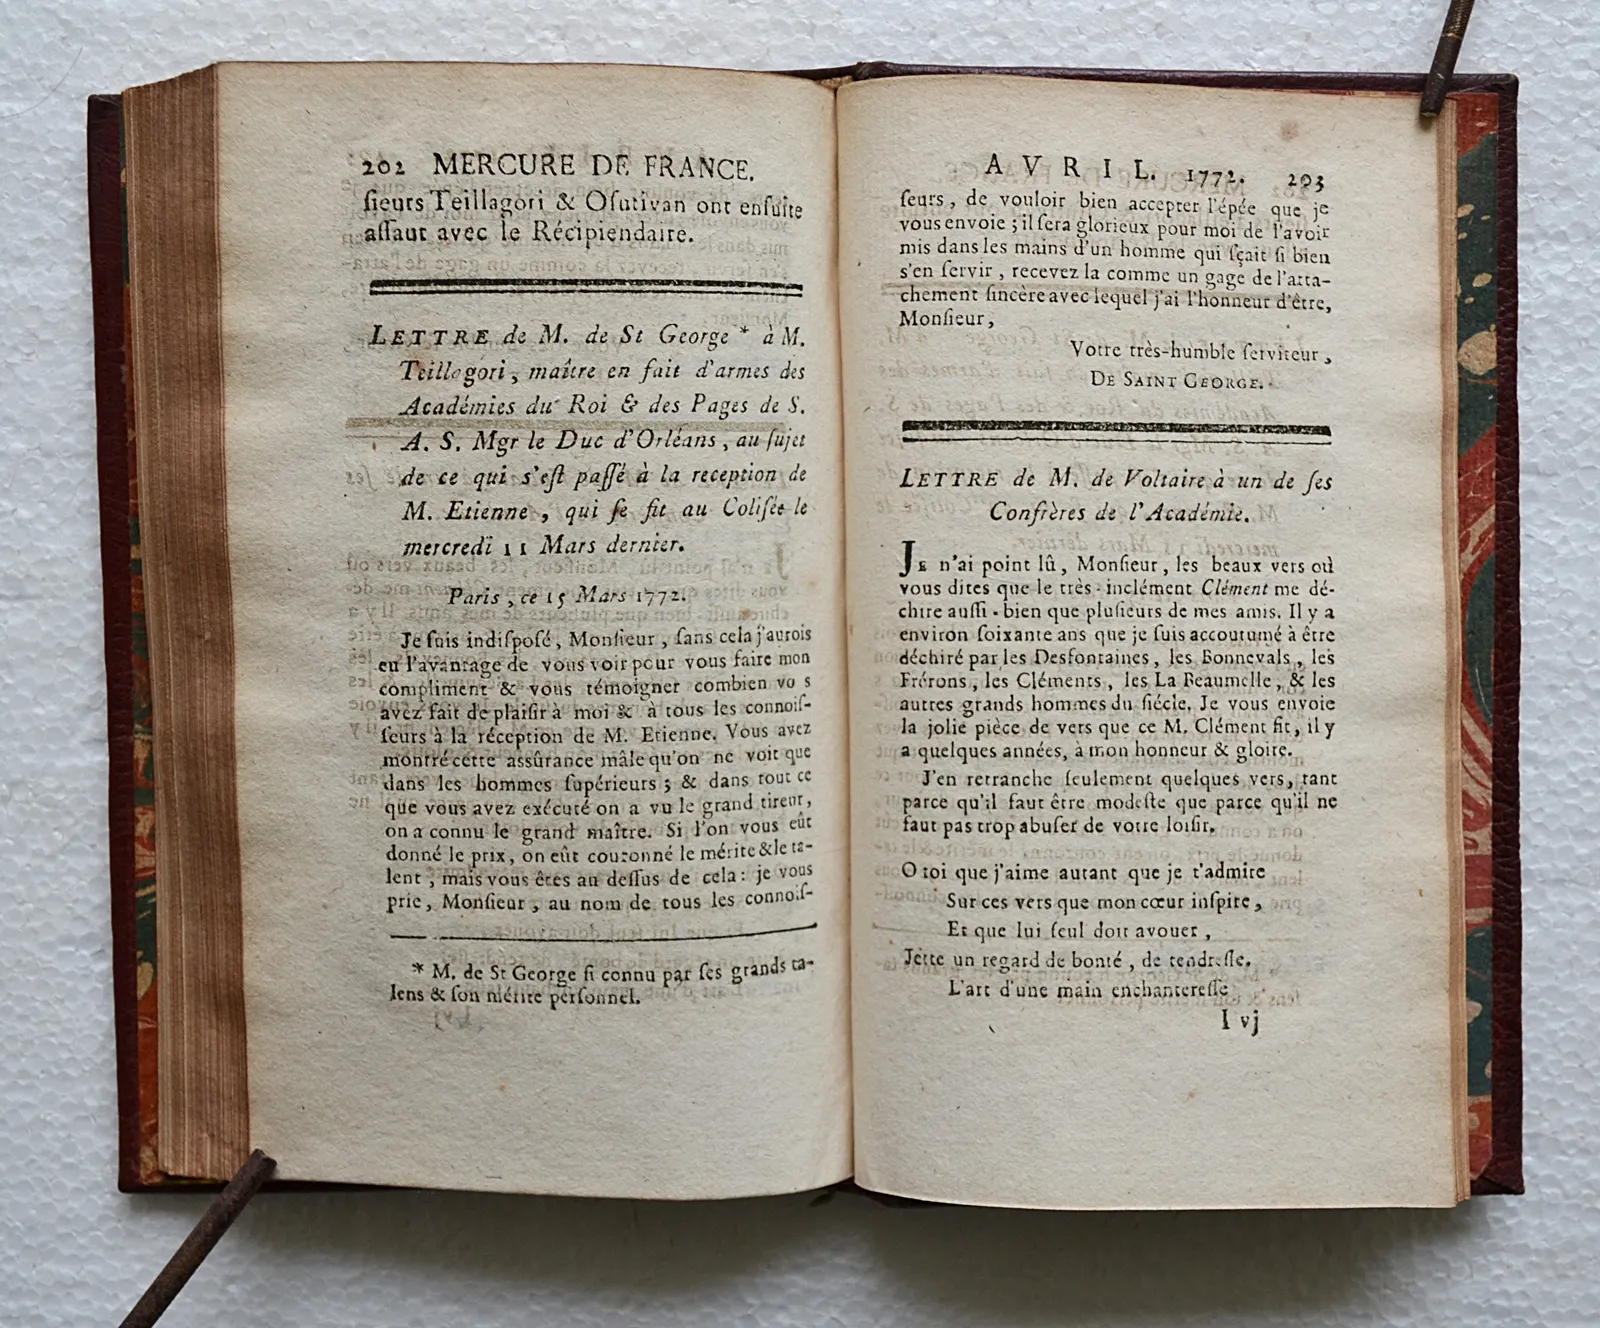 202 MERCURE DE FRANCE.
ſieurs Teillagori & Oſutivan ont enſuite
aſſaut avec le Récipiendaire.
LETTRE de M. de St George * à M.
Teillagori, maître en fait d'armes des
Académies du Roi & des Pages de S.
A. S. Mgr le Duc d'Orléans, au ſujet
de ce qui s'eſt paſſé à la reception de
M. Etienne, qui ſe fit au Coliſée le
mercredi 11 Mars dernier.
Paris, ce 15 Mars 1772.
Je ſuis indiſpoſé, Monſieur, ſans cela j'aurois
eu l'avantage de vous voir pour vous faire mon
compliment & vous témoigner combien vo s
avez fait de plaiſir à moi & à tous les connoiſ-
ſeurs à la réception de M. Etienne. Vous avez
montré cette assûrance mâle qu'on ne voit que
dans les hommes ſupérieurs; & dans tout ce
que vous avez exécuté on a vu le grand tireur,
on a connu le grand maître. Si l'on vous eût
donné le prix, on eût couronné le mérite & le ta-
lent, mais vous êtes au deſſus de cela: je vous
prie, Monſieur, au nom de tous les connoiſ-
* M. de St George ſi connu par ſes grands ta-
lens & ſon mérite perſonnel.
AVRIL. 1772. 203
ſeurs, de vouloir bien accepter l'épée que je
vous envoie; il ſera glorieux pour moi de l'avoir
mis dans les mains d'un homme qui ſçait ſi bien
s'en ſervir, recevez la comme un gage de l'atta-
chement ſincère avec lequel j'ai l'honneur d'être,
Monſieur,
Votre très-humble ſerviteur,
DE SAINT GEORGE.
LETTRE de M. de Voltaire à un de ſes
Confrères de l'Académie.
JE n'ai point lû, Monſieur, les beaux vers où
vous dites que le très-inclément Clément me dé-
chire auſſi-bien que pluſieurs de mes amis. Il y a
environ ſoixante ans que je ſuis accoutumé à être
déchiré par les Desfontaines, les Bonnevals, les
Frérons, les Cléments, les La Beaumelle, & les
autres grands hommes du ſiécle. Je vous envoie
la jolie pièce de vers que ce M. Clément fit, il y
a quelques années, à mon honneur & gloire.
J'en retranche ſeulement quelques vers, tant
parce qu'il faut être modeſte que parce qu'il ne
faut pas trop abuſer de votre loiſir.
O toi que j'aime autant que je t'admire
Sur ces vers que mon cœur inſpire,
Et que lui ſeul doit avouer,
Jette un regard de bonté, de tendreſſe.
L'art d'une main enchantereſſe
I vj